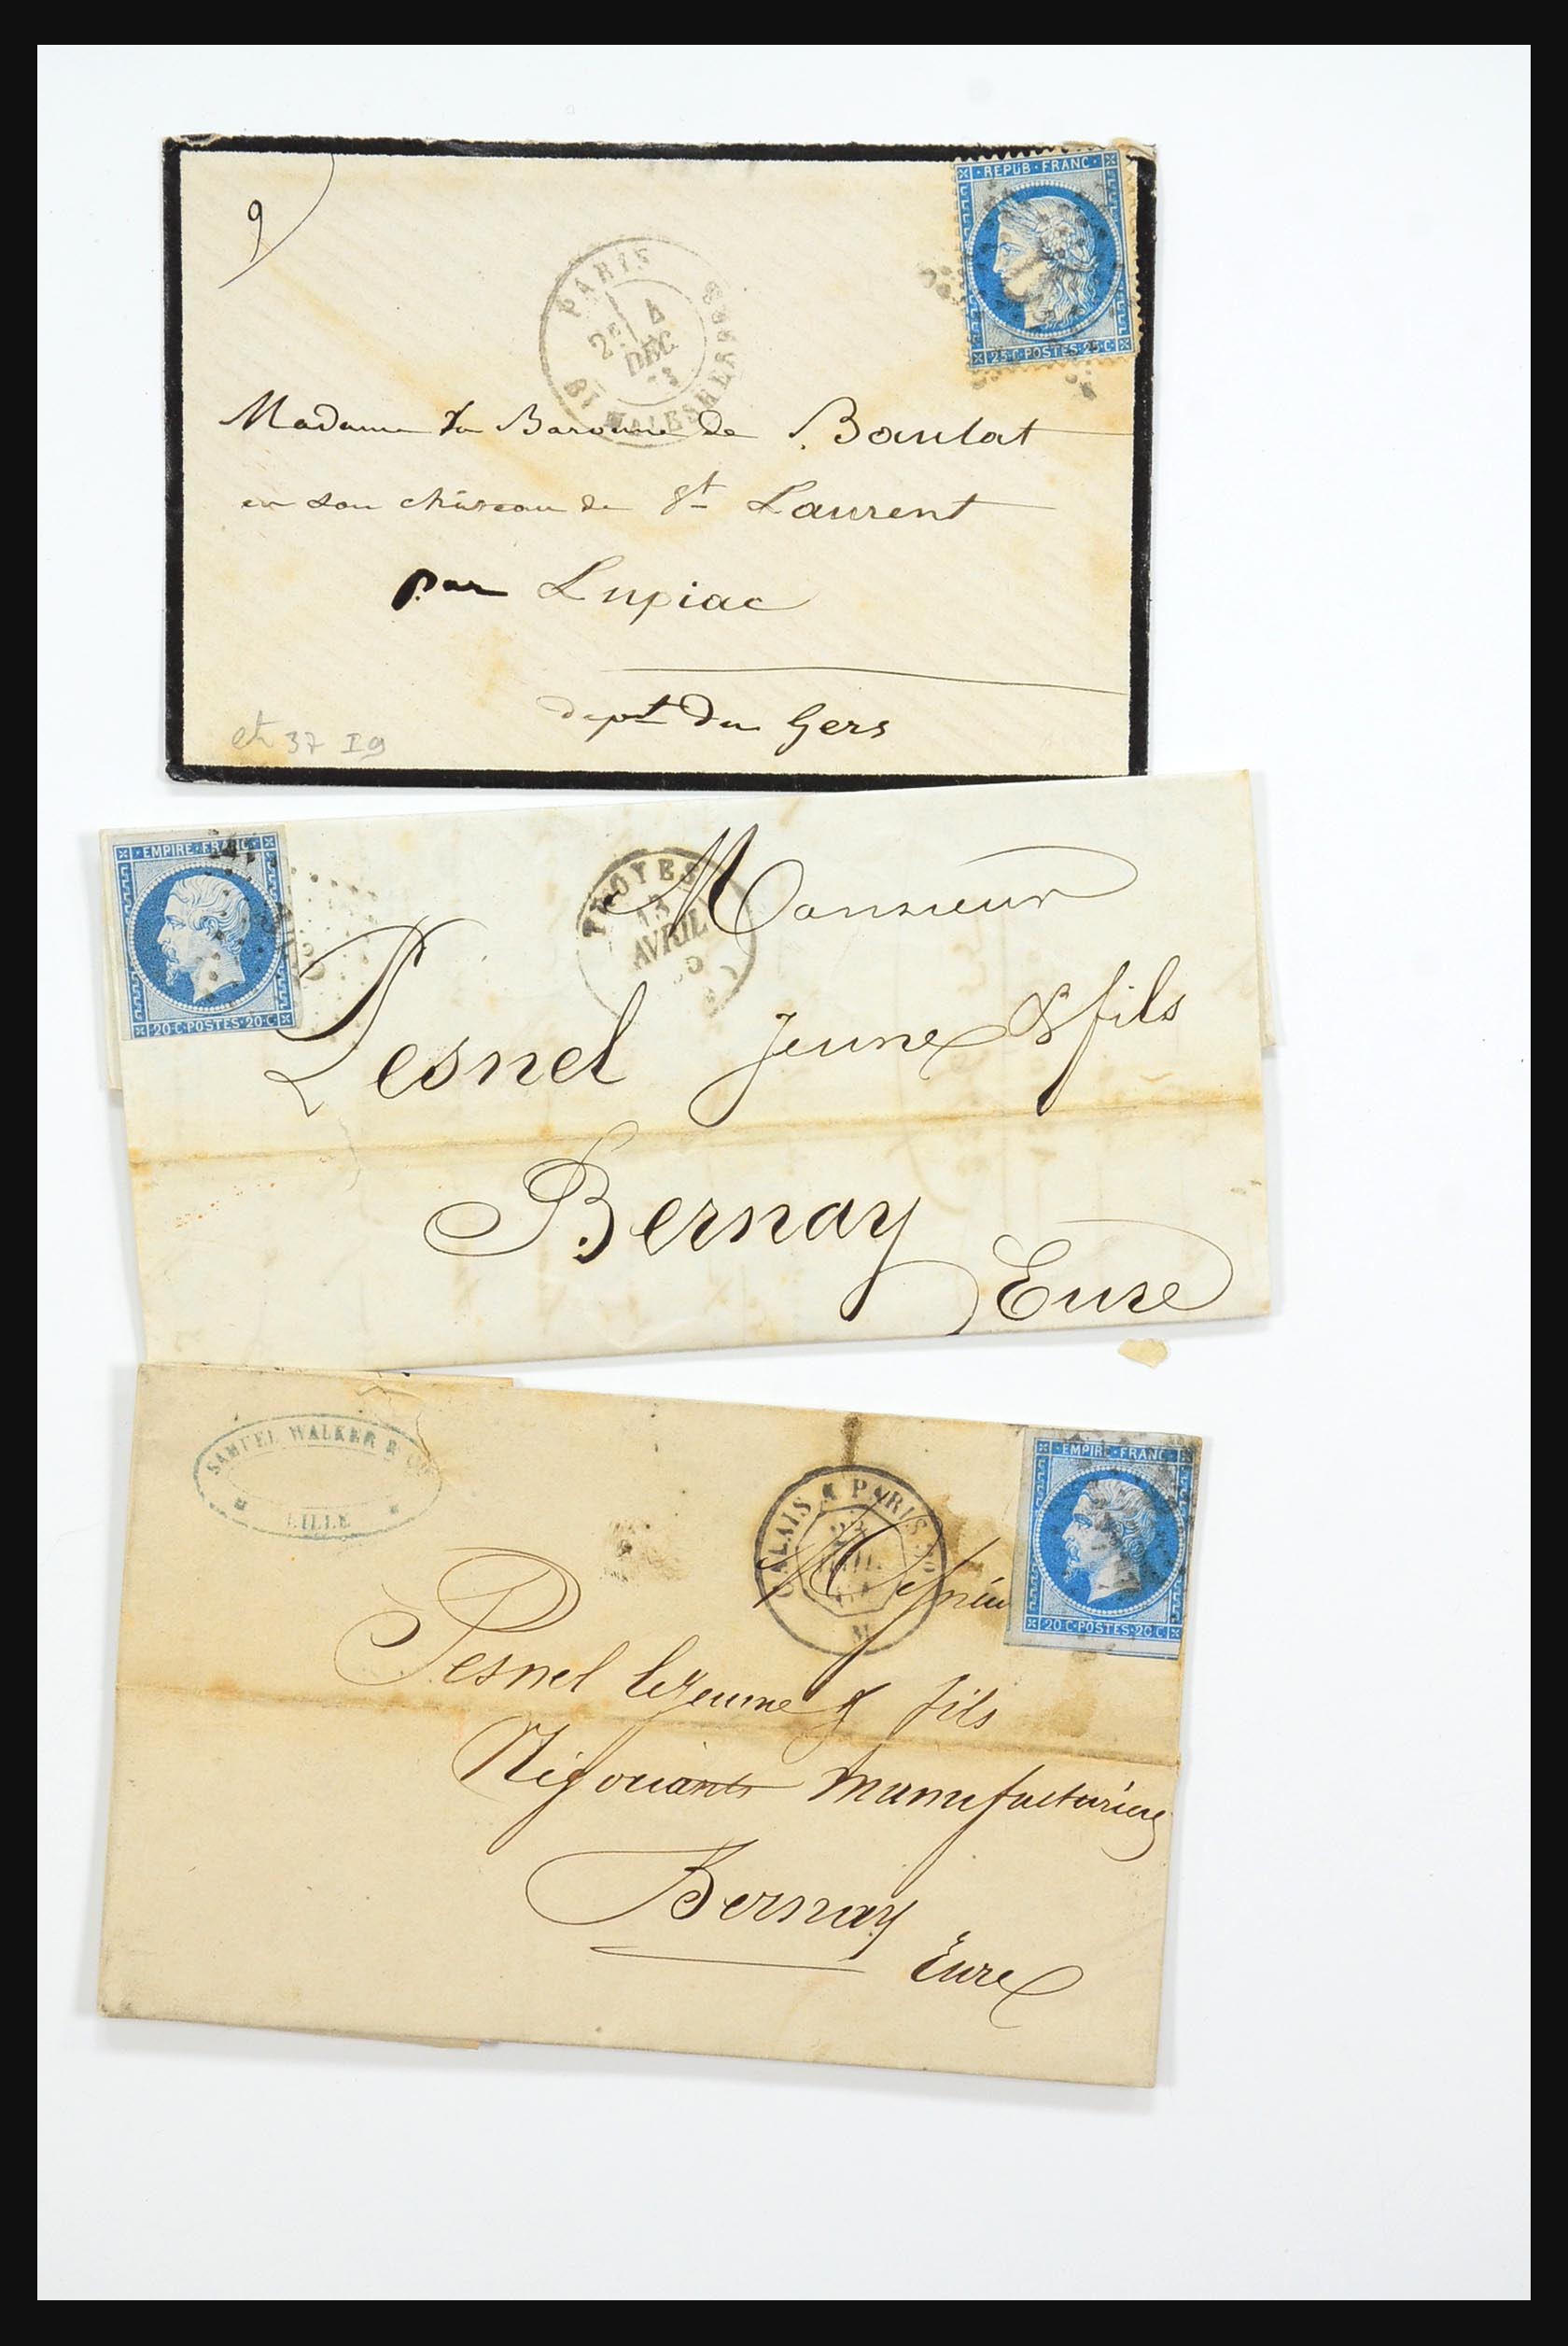 9
REPUB·FRANC·
25·C·POSTES·25·C
PARIS
2E
4
DEC
73
BT MALESHERBES
Madame la Baronne de Boulat
en son château de St Laurent
par Lupiac
dept du Gers
37 I 9
EMPIRE·FRANC·
20·C·POSTES·20·C
TROYES
13
AVRIL
Monsieur
Pesnel Jeune & fils
Bernay
Eure
SAMUEL WALKER & Co
LILLE
CALAIS A PARIS
M
EMPIRE·FRANC·
20·C·POSTES·20·C
Pesnel le Jeune & fils
Négociants Manufacturiers
Bernay
Eure